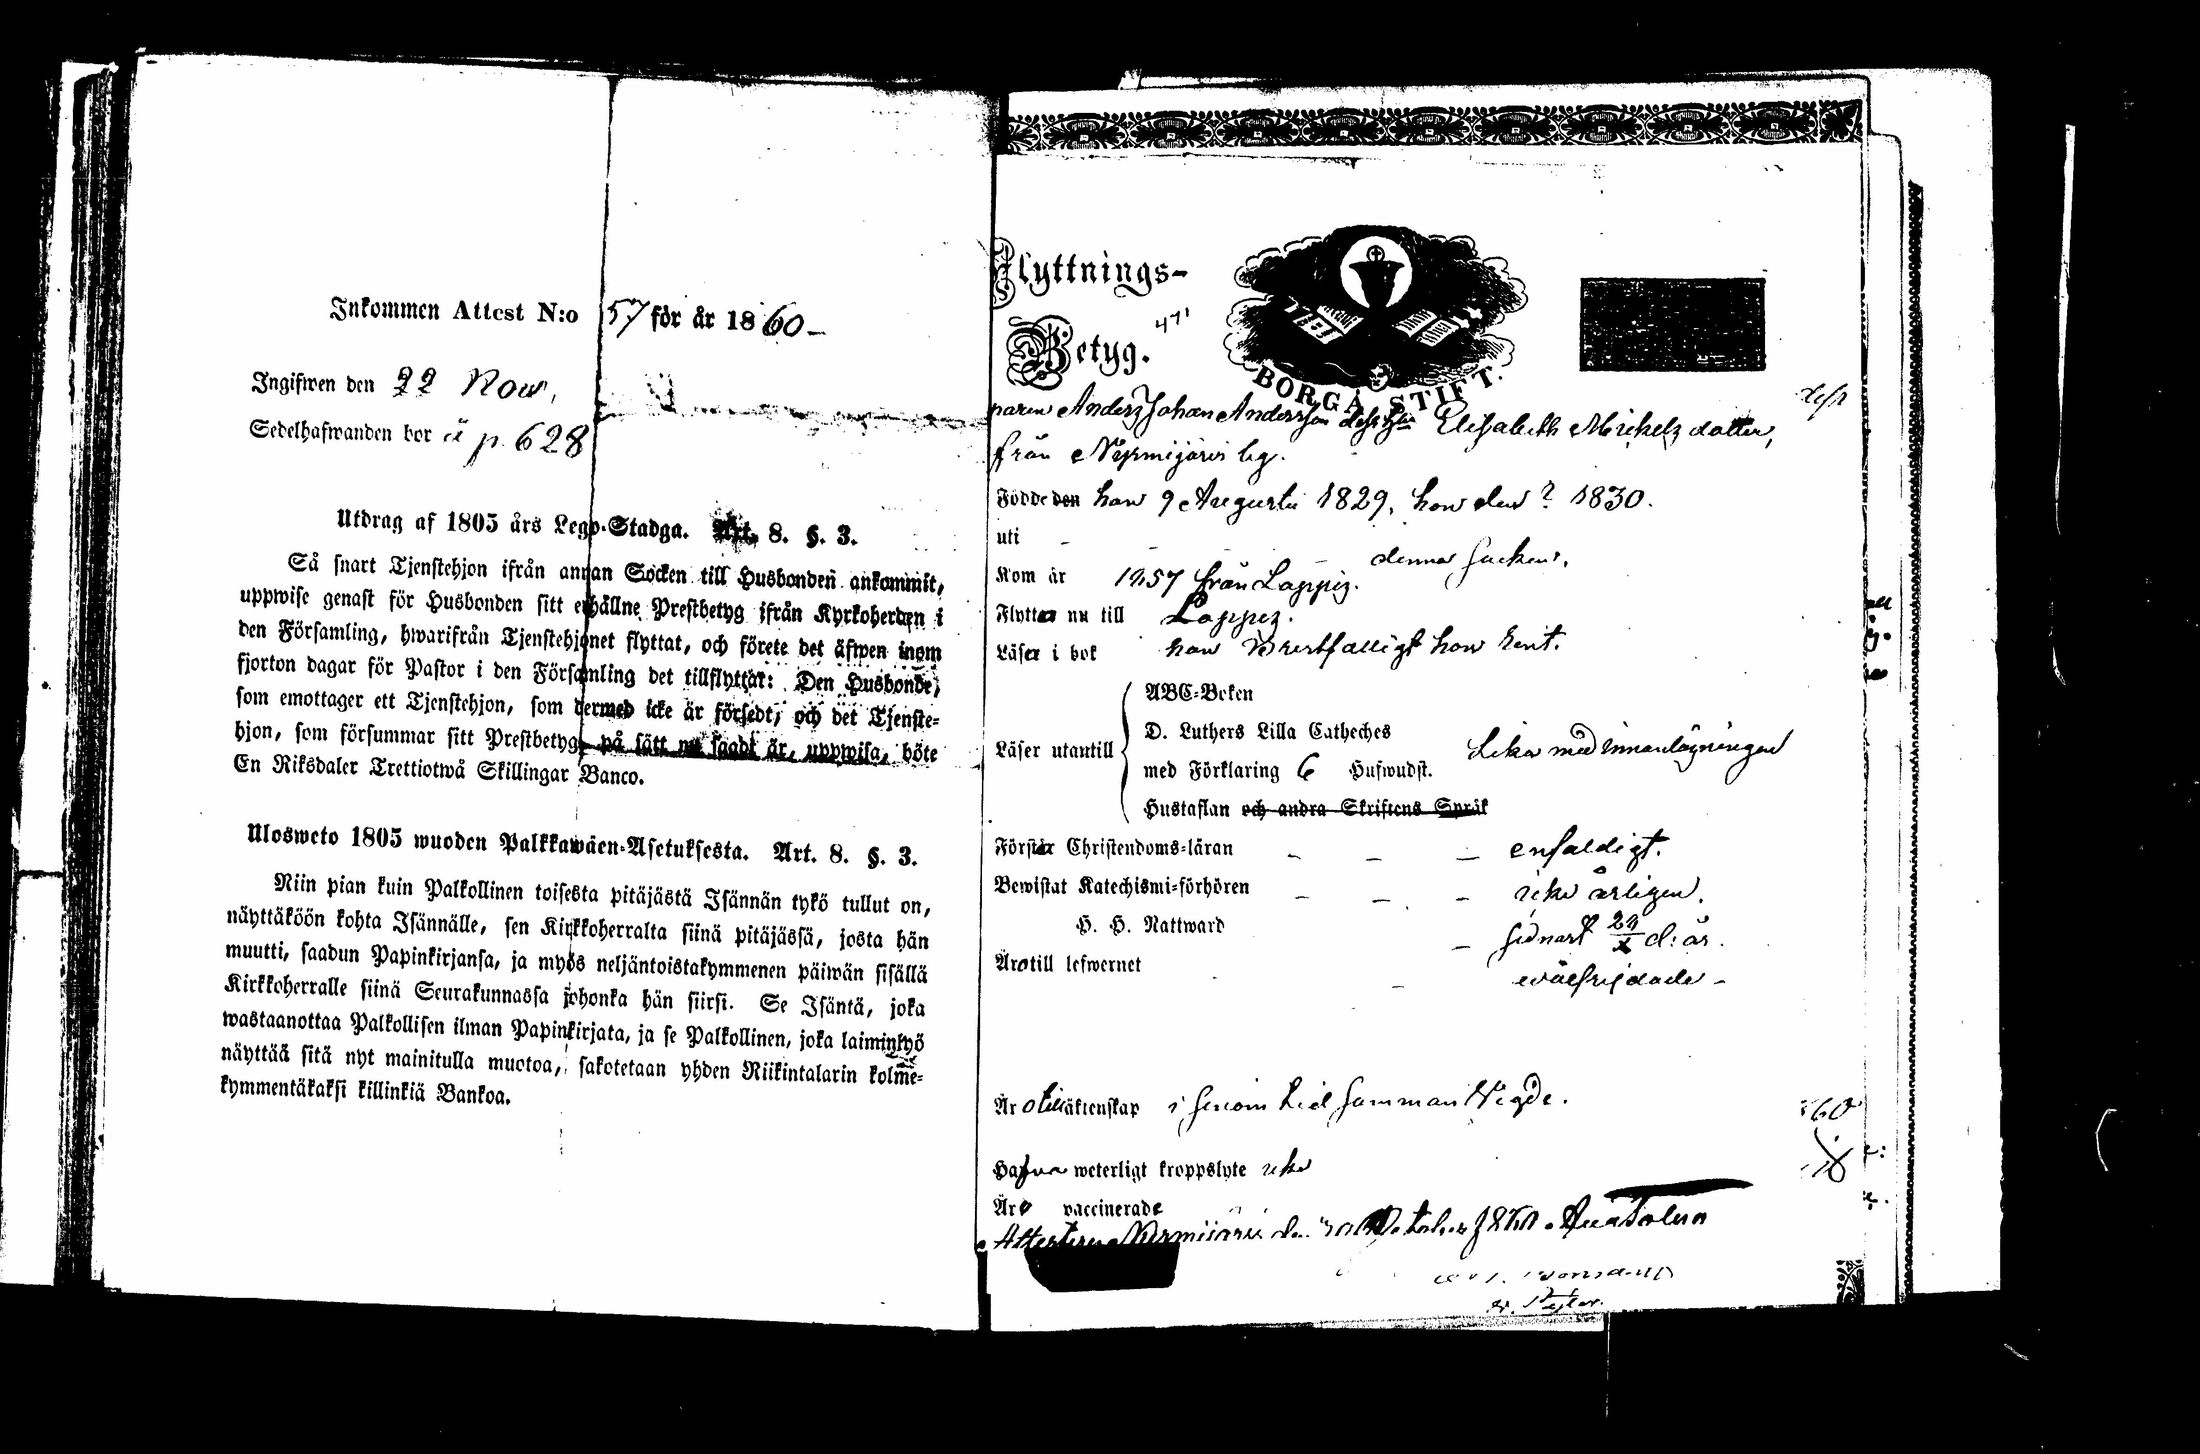 Inkommen Attest N:o 57 för år 1860-
Ingifwen den 22 Nov,
Sedelhafwanden bor å p. 628
Utdrag af 1805 års Lego-Stadga. Art. 8. §. 3.
Så snart Tjenstehjon ifrån annan Socken till Husbonden ankommit,
uppwise genast för Husbonden sitt erhållne Prestbetyg ifrån Kyrkoherden i
den Församling, hwarifrån Tjenstehjonet flyttat, och förete det äfwen inom
fjorton dagar för Pastor i den Församling det tillflyttat: Den Husbonde,
som emottager ett Tjenstehjon, som dermed icke är försedt, och det Tjenste-
hjon, som försummar sitt Prestbetyg, på sätt nu sagdt är, uppwisa, böte
En Riksdaler Trettiotwå Skillingar Banco.
Ulosweto 1805 wuoden Palkkawäen-Asetuksesta. Art. 8. §. 3.
Niin pian kuin Palkollinen toisesta pitäjästä Isännän tykö tullut on,
näyttäköön kohta Isännälle, sen Kirkkoherralta siinä pitäjässä, josta hän
muutti, saadun Papinkirjansa, ja myös neljäntoistakymmenen päiwän sisällä
Kirkkoherralle siinä Seurakunnassa johonka hän siirsi. Se Isäntä, joka
wastaanottaa Palkollisen ilman Papinkirjata, ja se Palkollinen, joka laiminlyö
näyttää sitä nyt mainitulla muotoa, sakotetaan yhden Riikintalarin kolme-
kymmentäkaksi killinkiä Bankoa.
Flyttnings-
Betyg. 471
BORGÅ STIFT.
paren Anders Johan Andersson dess Elisabeth Mickelsdotter,
från Nurmijärvi by.
Födde den han 9 Augusti 1829, hon den ? 1830.
uti - - - denna Socken.
Kom år 1857 från Loppis.
Flytta nu till Loppis.
Läsa i bok han Bristfälligt hon rent.
ABC-Boken
D. Luthers Lilla Catheches
Läser utantill
med Förklaring 6 Hufwudst.
Lika med innanläsningen
Hustaflan och andra Skriftens Språk
Förstår Christendoms-läran - - - enfaldigt.
Bewistat Katechismi-förhören - - - icke årligen.
H. H. Nattward - sednast d: år.
Äro till lefwernet - wälfrejdade -
Äro till äktenskap i genom Lied sammanwigde.
Hafva weterligt kroppslyte icke
Äro vaccinerade
Attesterar Nurmijärvi